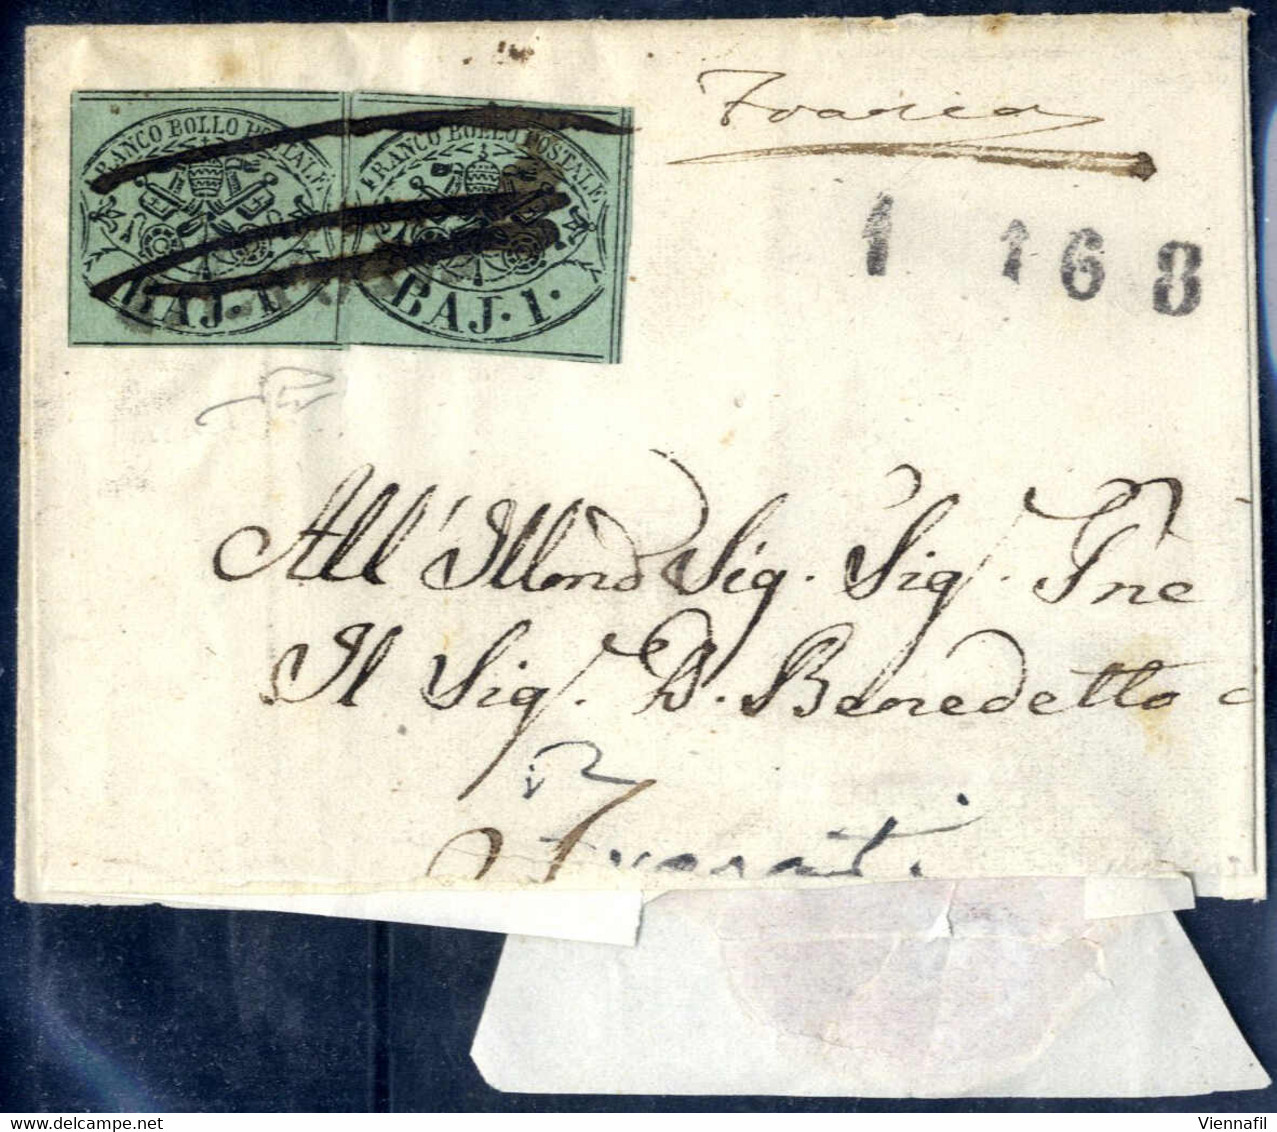 FRANCO BOLLO POSTALE
BAJ. 1.
FRANCO BOLLO POSTALE
BAJ. 1.
Franca
1 168
All' Illmo Sig. Sig. Pne
Il Sig. D. Benedetto
Viennafil